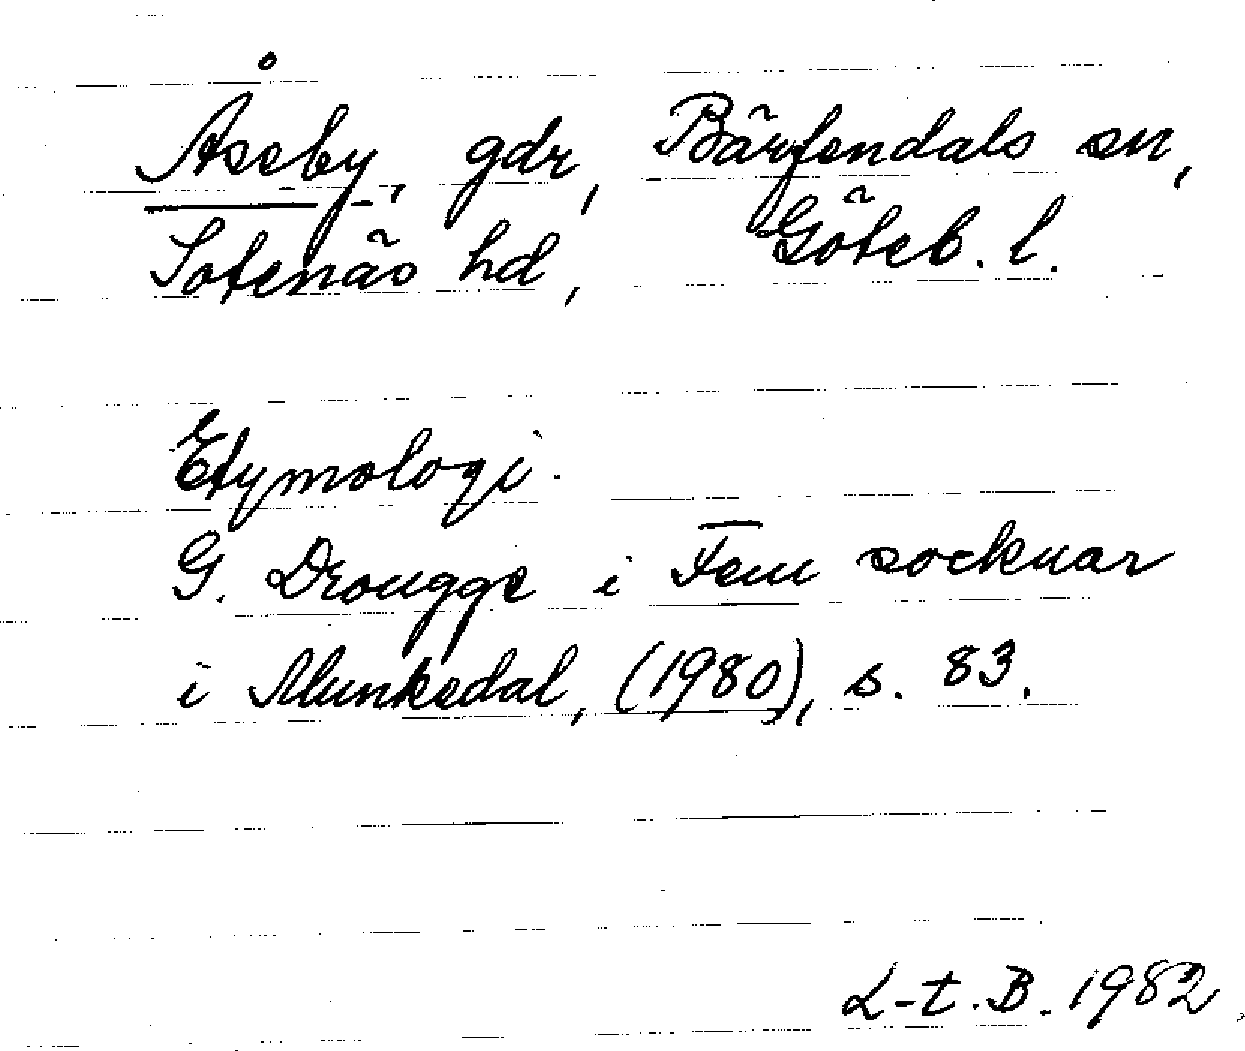 Åseby, gdr, Bärfendals sn,
Sotenäs hd, Göteb. l.
Etymologi.
G. Drougge i Fem socknar
i Munkedal, (1980), s. 83.
L-t. B. 1982.